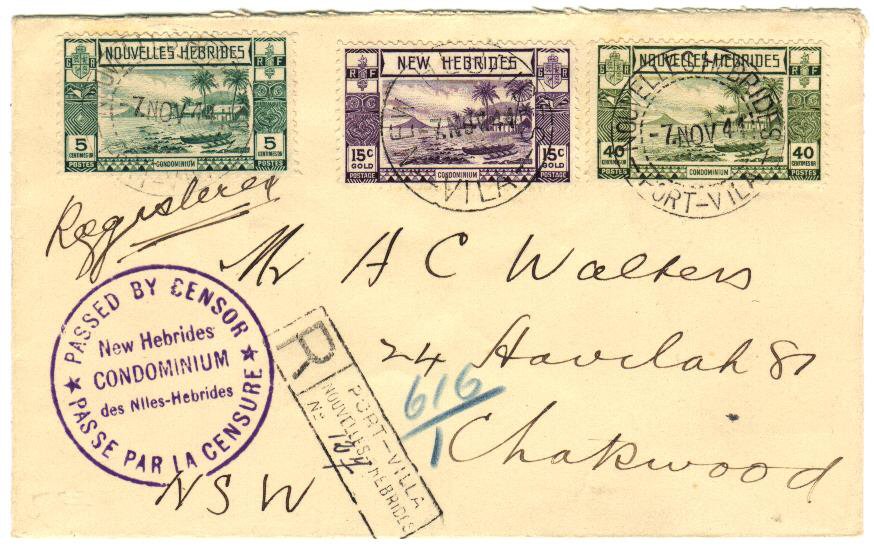 NOUVELLES HEBRIDES
RF
5 CENTIMES OR
5 CENTIMES OR
CONDOMINIUM
POSTES POSTES
7.NOV
NEW HEBRIDES
RF
15c GOLD
15c GOLD
CONDOMINIUM
POSTAGE POSTAGE
7.NOV 41
VILA
NOUVELLES HEBRIDES
RF
40 CENTIMES OR
40 CENTIMES OR
CONDOMINIUM
POSTES POSTES
NOUVELLES HEBRIDES
-7.NOV 41
PORT-VILA
Registered
Mr A C Walters
24 Havilah St
Chatswood
NSW
PASSED BY CENSOR
New Hebrides
CONDOMINIUM
des Nlles-Hebrides
★ PASSE PAR LA CENSURE ★
R
PORT-VILLA
NOUVELLES-HEBRIDES
No
616
1